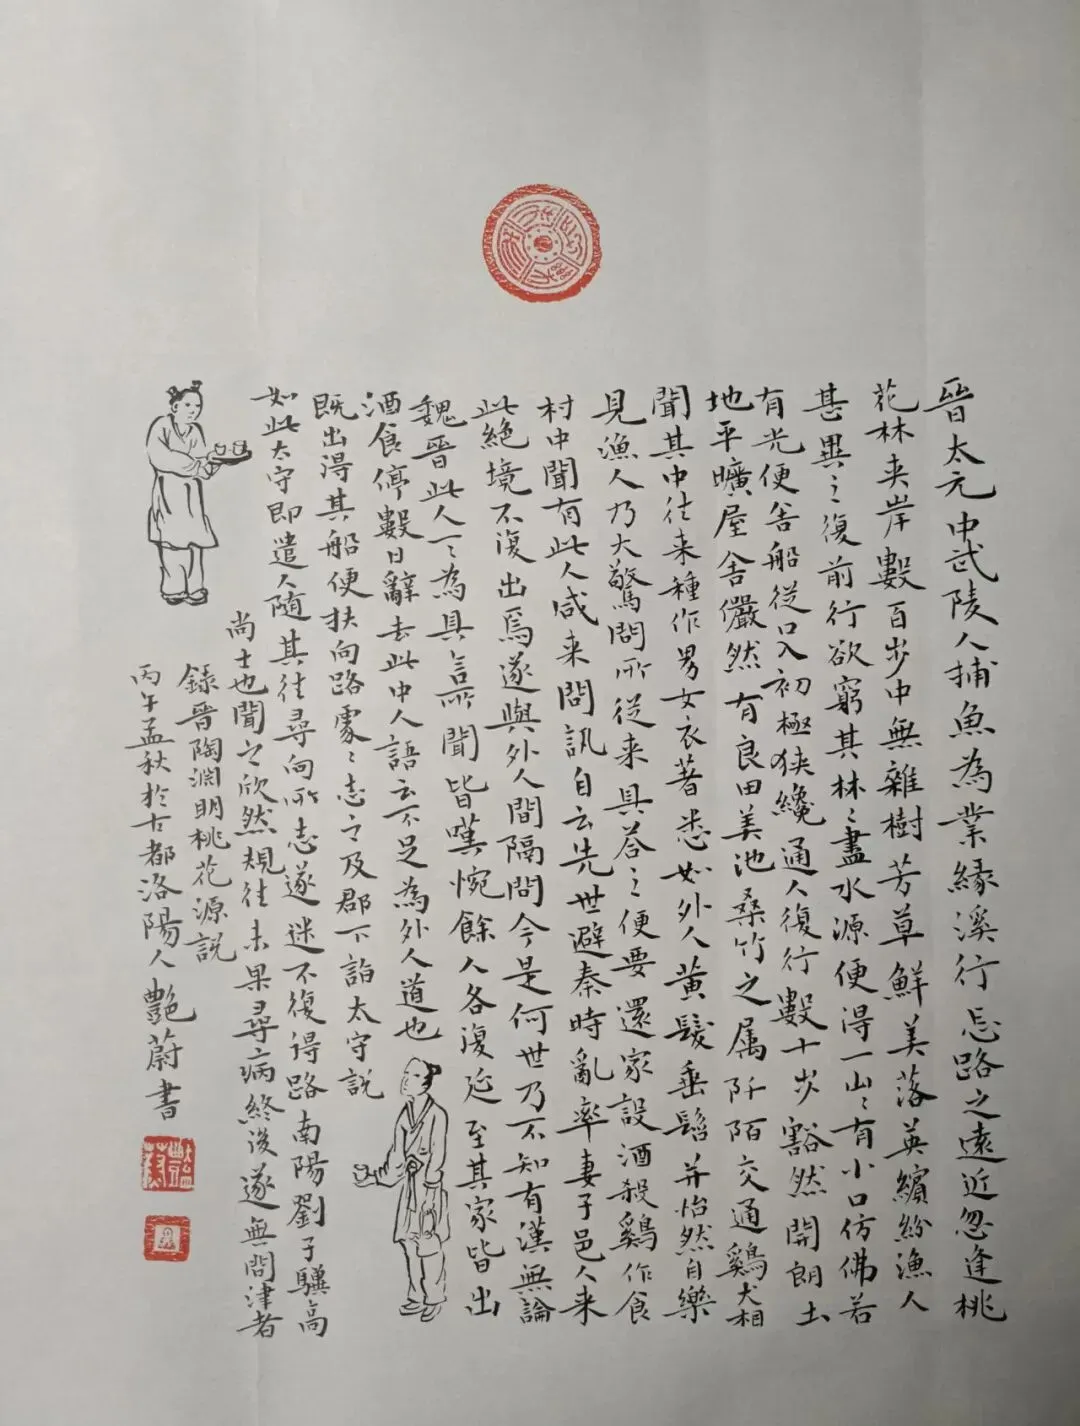 晉太元中武陵人捕魚為業緣溪行忘路之遠近忽逢桃
花林夹岸數百步中無雜樹芳草鮮美落英繽紛漁人
甚異之復前行欲窮其林〻盡水源便得一山〻有小口仿佛若
有光便舍船從口入初極狭纔通人復行數十步豁然開朗土
地平曠屋舍儼然有良田美池桑竹之属阡陌交通鷄犬相
聞其中往来種作男女衣著悉如外人黄髮垂髫并怡然自樂
見漁人乃大驚問所從来具答之便要還家設酒殺鷄作食
村中聞有此人咸来問訊自云先世避秦時亂率妻子邑人来
此絶境不復出焉遂與外人間隔問今是何世乃不知有漢無論
魏晋此人一〻為具言所聞皆嘆惋餘人各復延至其家皆出
酒食停數日辭去此中人語云不足為外人道也
既出得其船便扶向路處〻志之及郡下詣太守説
如此太守即遣人随其往尋向所志遂迷不復得路南陽劉子驥高
尚士也聞之欣然規往未果尋病終後遂無問津者
録晋陶淵明桃花源説
丙午孟秋於古都洛陽人艷蔚書
艷蔚